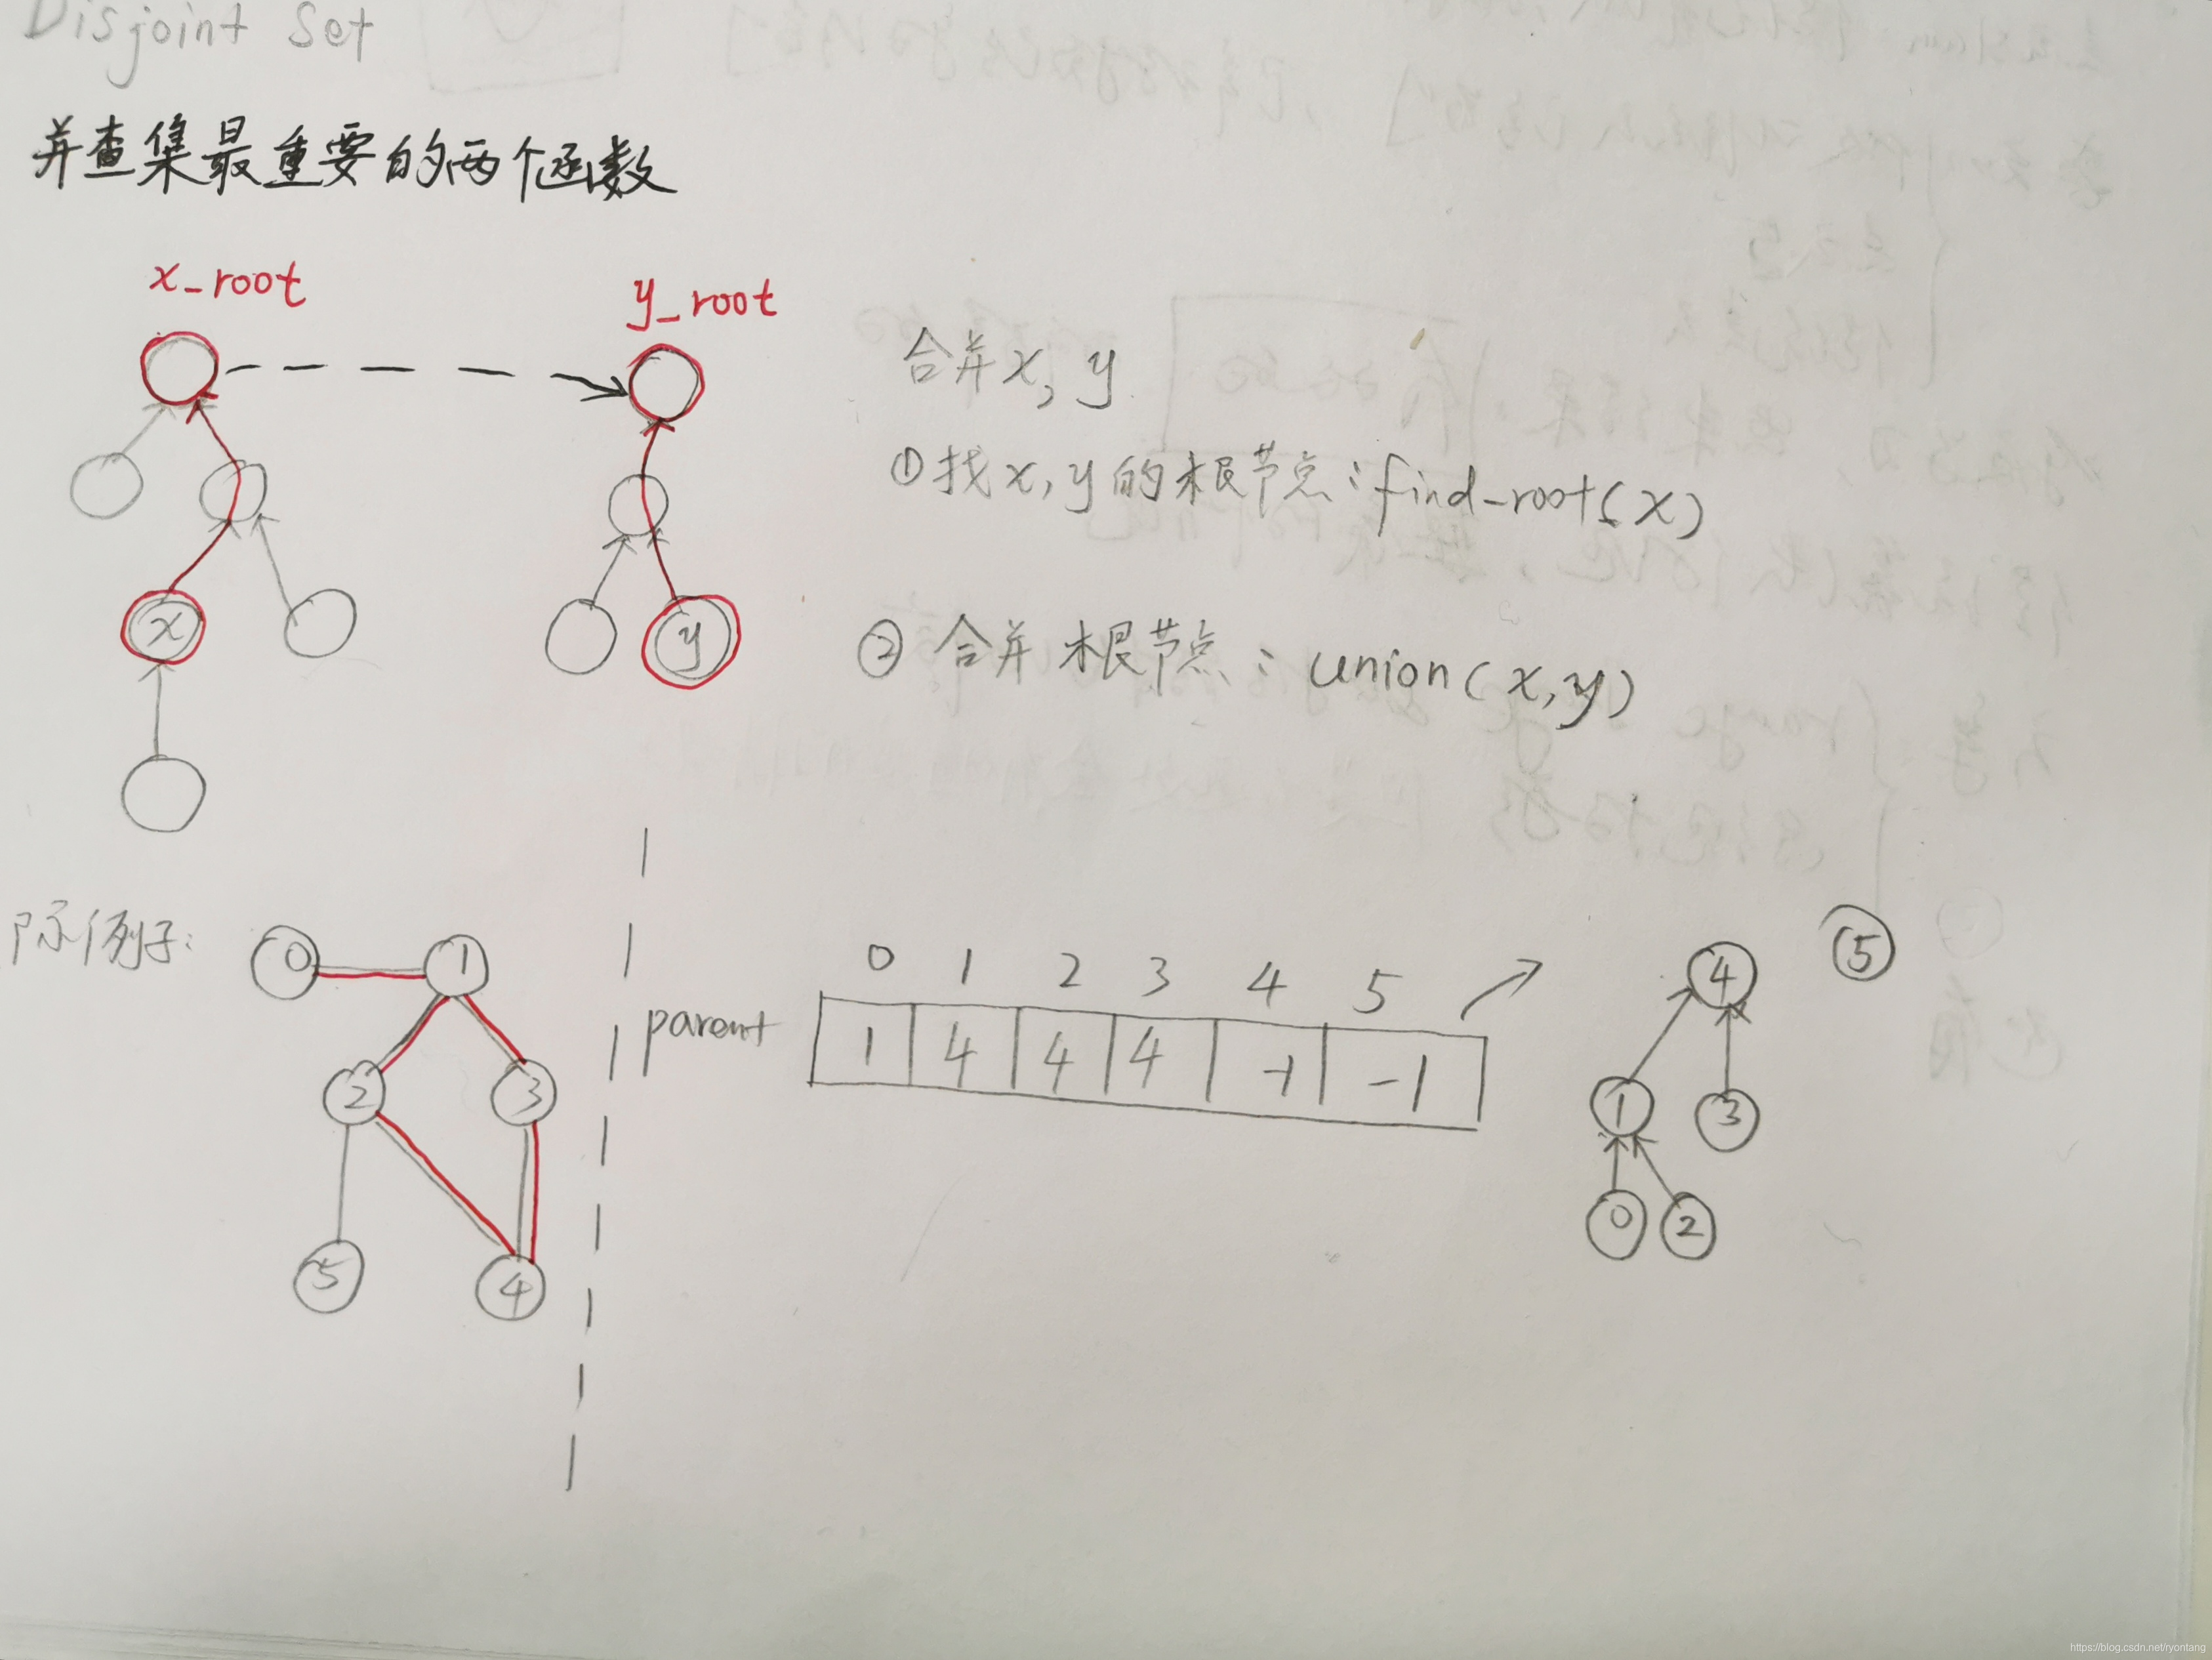 Disjoint Set
并查集最重要的两个函数
x_root
y_root
合并x, y
①找x,y的根节点:find_root(x)
x
y
②合并根节点:union(x,y)
际例子:
0 1
2 3
5 4
0 1 2 3 4 5
parent 1 4 4 4 -1 -1
4 5
1 3
0 2
https://blog.csdn.net/ryontang